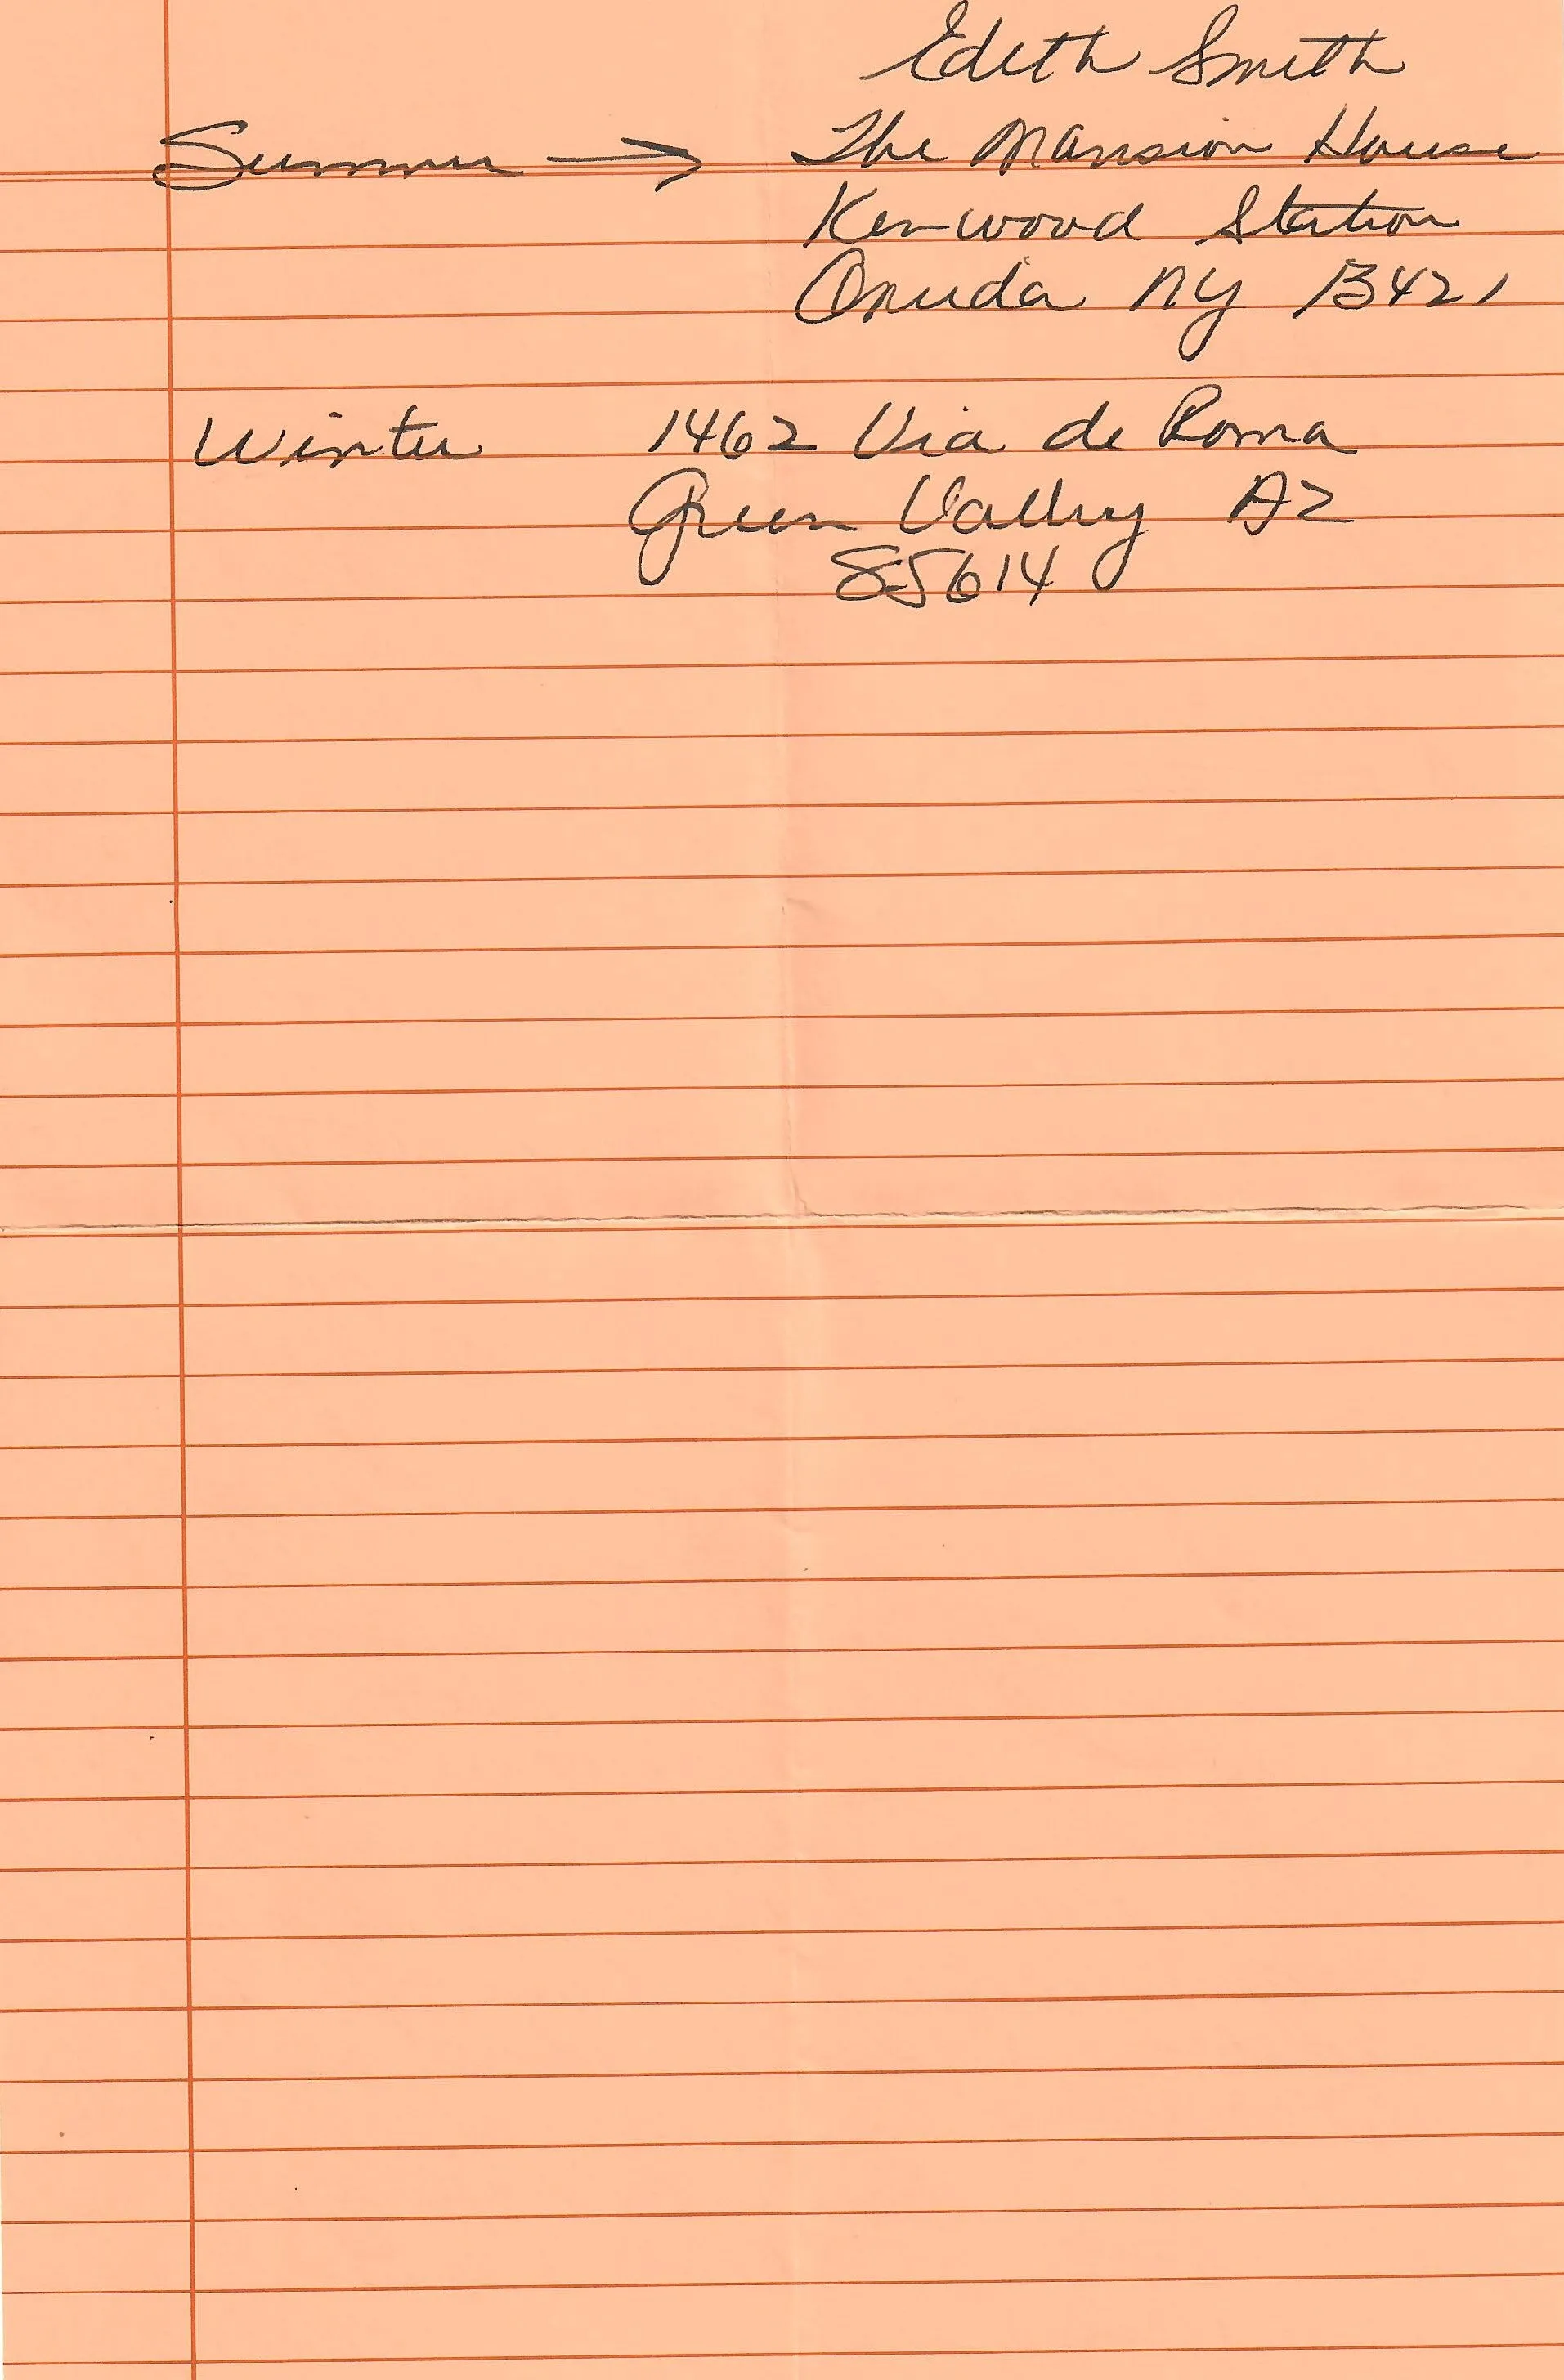 Edith Smith
Summer → The Mansion House
Kenwood Station
Oneida NY 13421
Winter 1462 Via de Roma
Green Valley AZ
85614